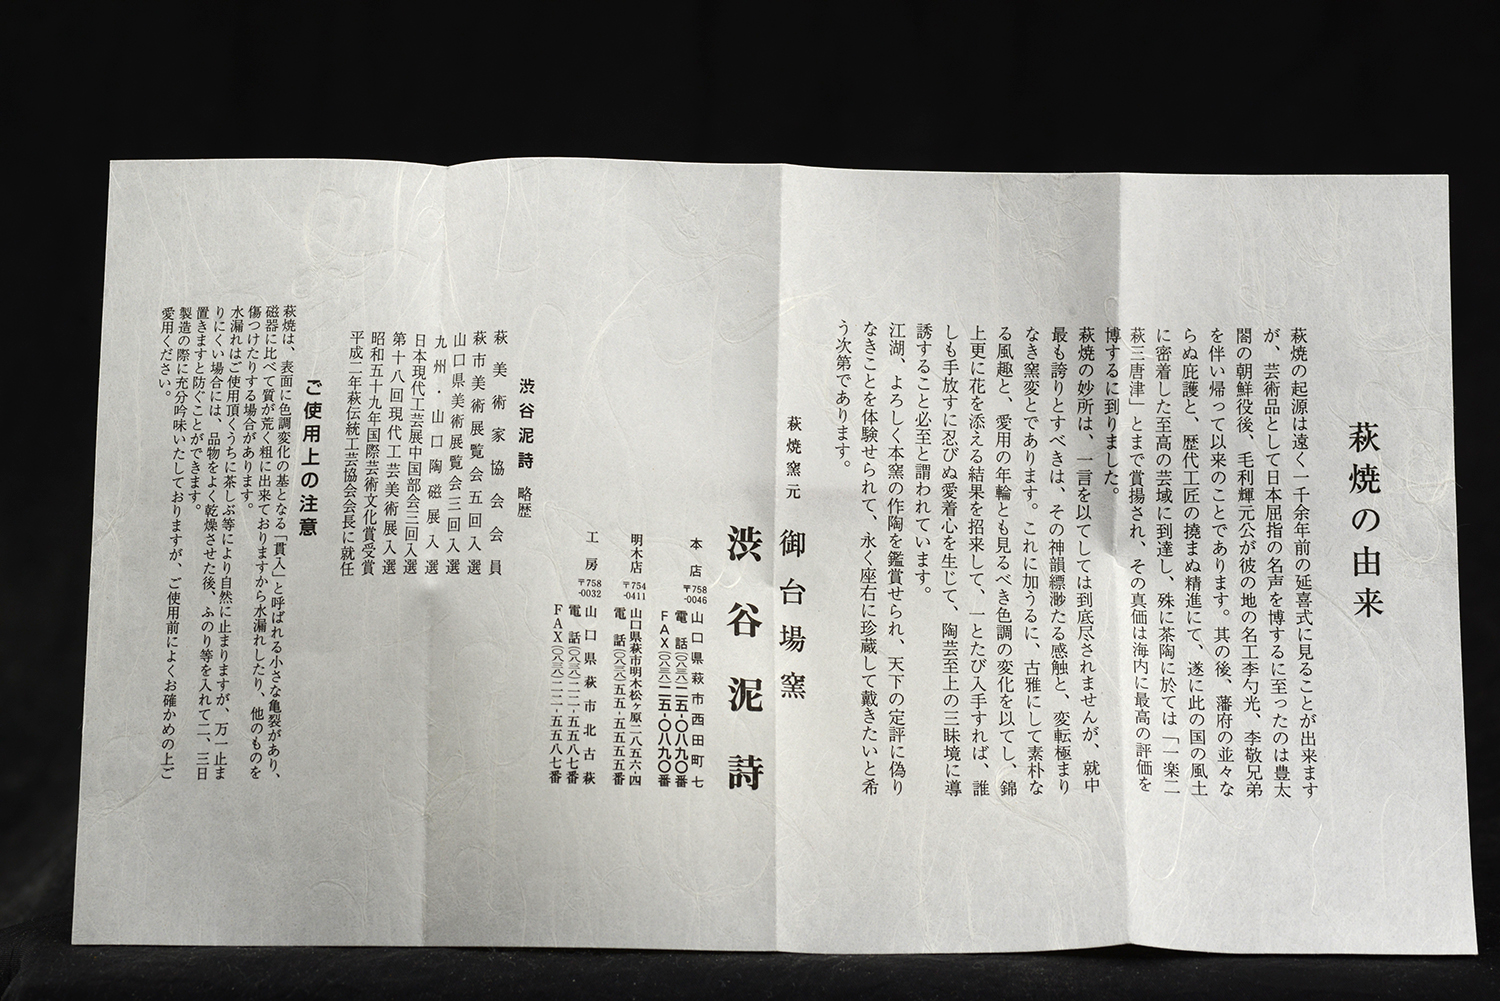 萩焼の由来
萩焼の起源は遠く一千余年前の延喜式に見ることが出来ます
が、芸術品として日本屈指の名声を博するに至ったのは豊太
閤の朝鮮役後、毛利輝元公が彼の地の名工李勺光、李敬兄弟
を伴い帰って以来のことであります。其の後、藩府の並々な
らぬ庇護と、歴代工匠の撓まぬ精進にて、遂に此の国の風土
に密着した至高の芸域に到達し、殊に茶陶に於ては「一楽二
萩三唐津」とまで賞揚され、その真価は海内に最高の評価を
博するに到りました。
萩焼の妙所は、一言を以てしては到底尽されませんが、就中
最も誇りとすべきは、その神韻縹渺たる感触と、変転極まり
なき窯変とであります。これに加うるに、古雅にして素朴な
る風趣と、愛用の年輪とも見るべき色調の変化を以てし、錦
上更に花を添える結果を招来して、一とたび入手すれば、誰
しも手放すに忍びぬ愛着心を生じて、陶芸至上の三昧境に導
誘すること必至と謂われています。
江湖、よろしく本窯の作陶を鑑賞せられ、天下の定評に偽り
なきことを体験せられて、永く座右に珍蔵して戴きたいと希
う次第であります。
萩焼窯元 御台場窯
渋谷泥詩
本店 〒758-0046 山口県萩市西田町七
電話(〇八三八)二五-〇八九〇番
FAX(〇八三八)二五-〇八九〇番
明木店 〒754-0411 山口県萩市明木松ヶ原二八五六-四
電話(〇八三八)五五-五五五五番
工房 〒758-0032 山口県萩市北古萩
電話(〇八三八)二二-五五八七番
FAX(〇八三八)二二-五五八七番
渋谷泥詩 略歴
萩美術家協会会員
萩市美術展覧会五回入選
山口県美術展覧会三回入選
九州・山口陶磁展入選
日本現代工芸展中国部会三回入選
第十八回現代工芸美術展入選
昭和五十九年国際芸術文化賞受賞
平成二年萩伝統工芸協会会長に就任
ご使用上の注意
萩焼は、表面に色調変化の基となる「貫入」と呼ばれる小さな亀裂があり、
磁器に比べて質が荒く粗に出来ておりますから水漏れしたり、他のものを
傷つけたりする場合があります。
水漏れはご使用頂くうちに茶しぶ等により自然に止まりますが、万一止ま
りにくい場合には、品物をよく乾燥させた後、ふのり等を入れて二、三日
置きますと防ぐことができます。
製造の際に充分吟味いたしておりますが、ご使用前によくお確かめの上ご
愛用ください。